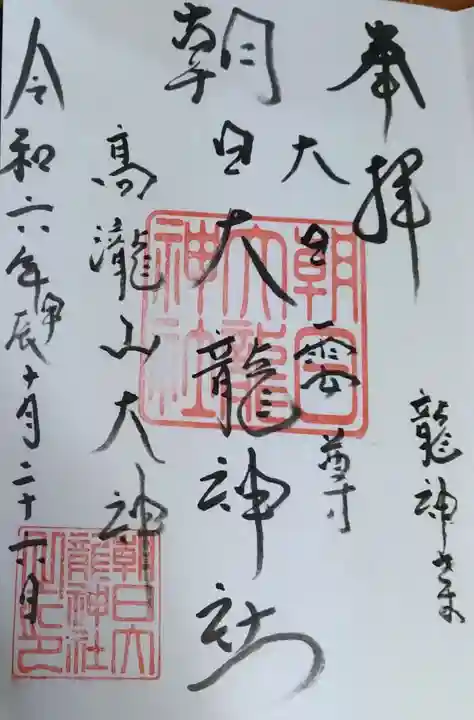 奉拝
龍神
大日
尊
朝日大龍神社
高瀧山大神
令和六年甲辰十月二十六日
朝日
大龍
神社
朝日大
龍神社
之印